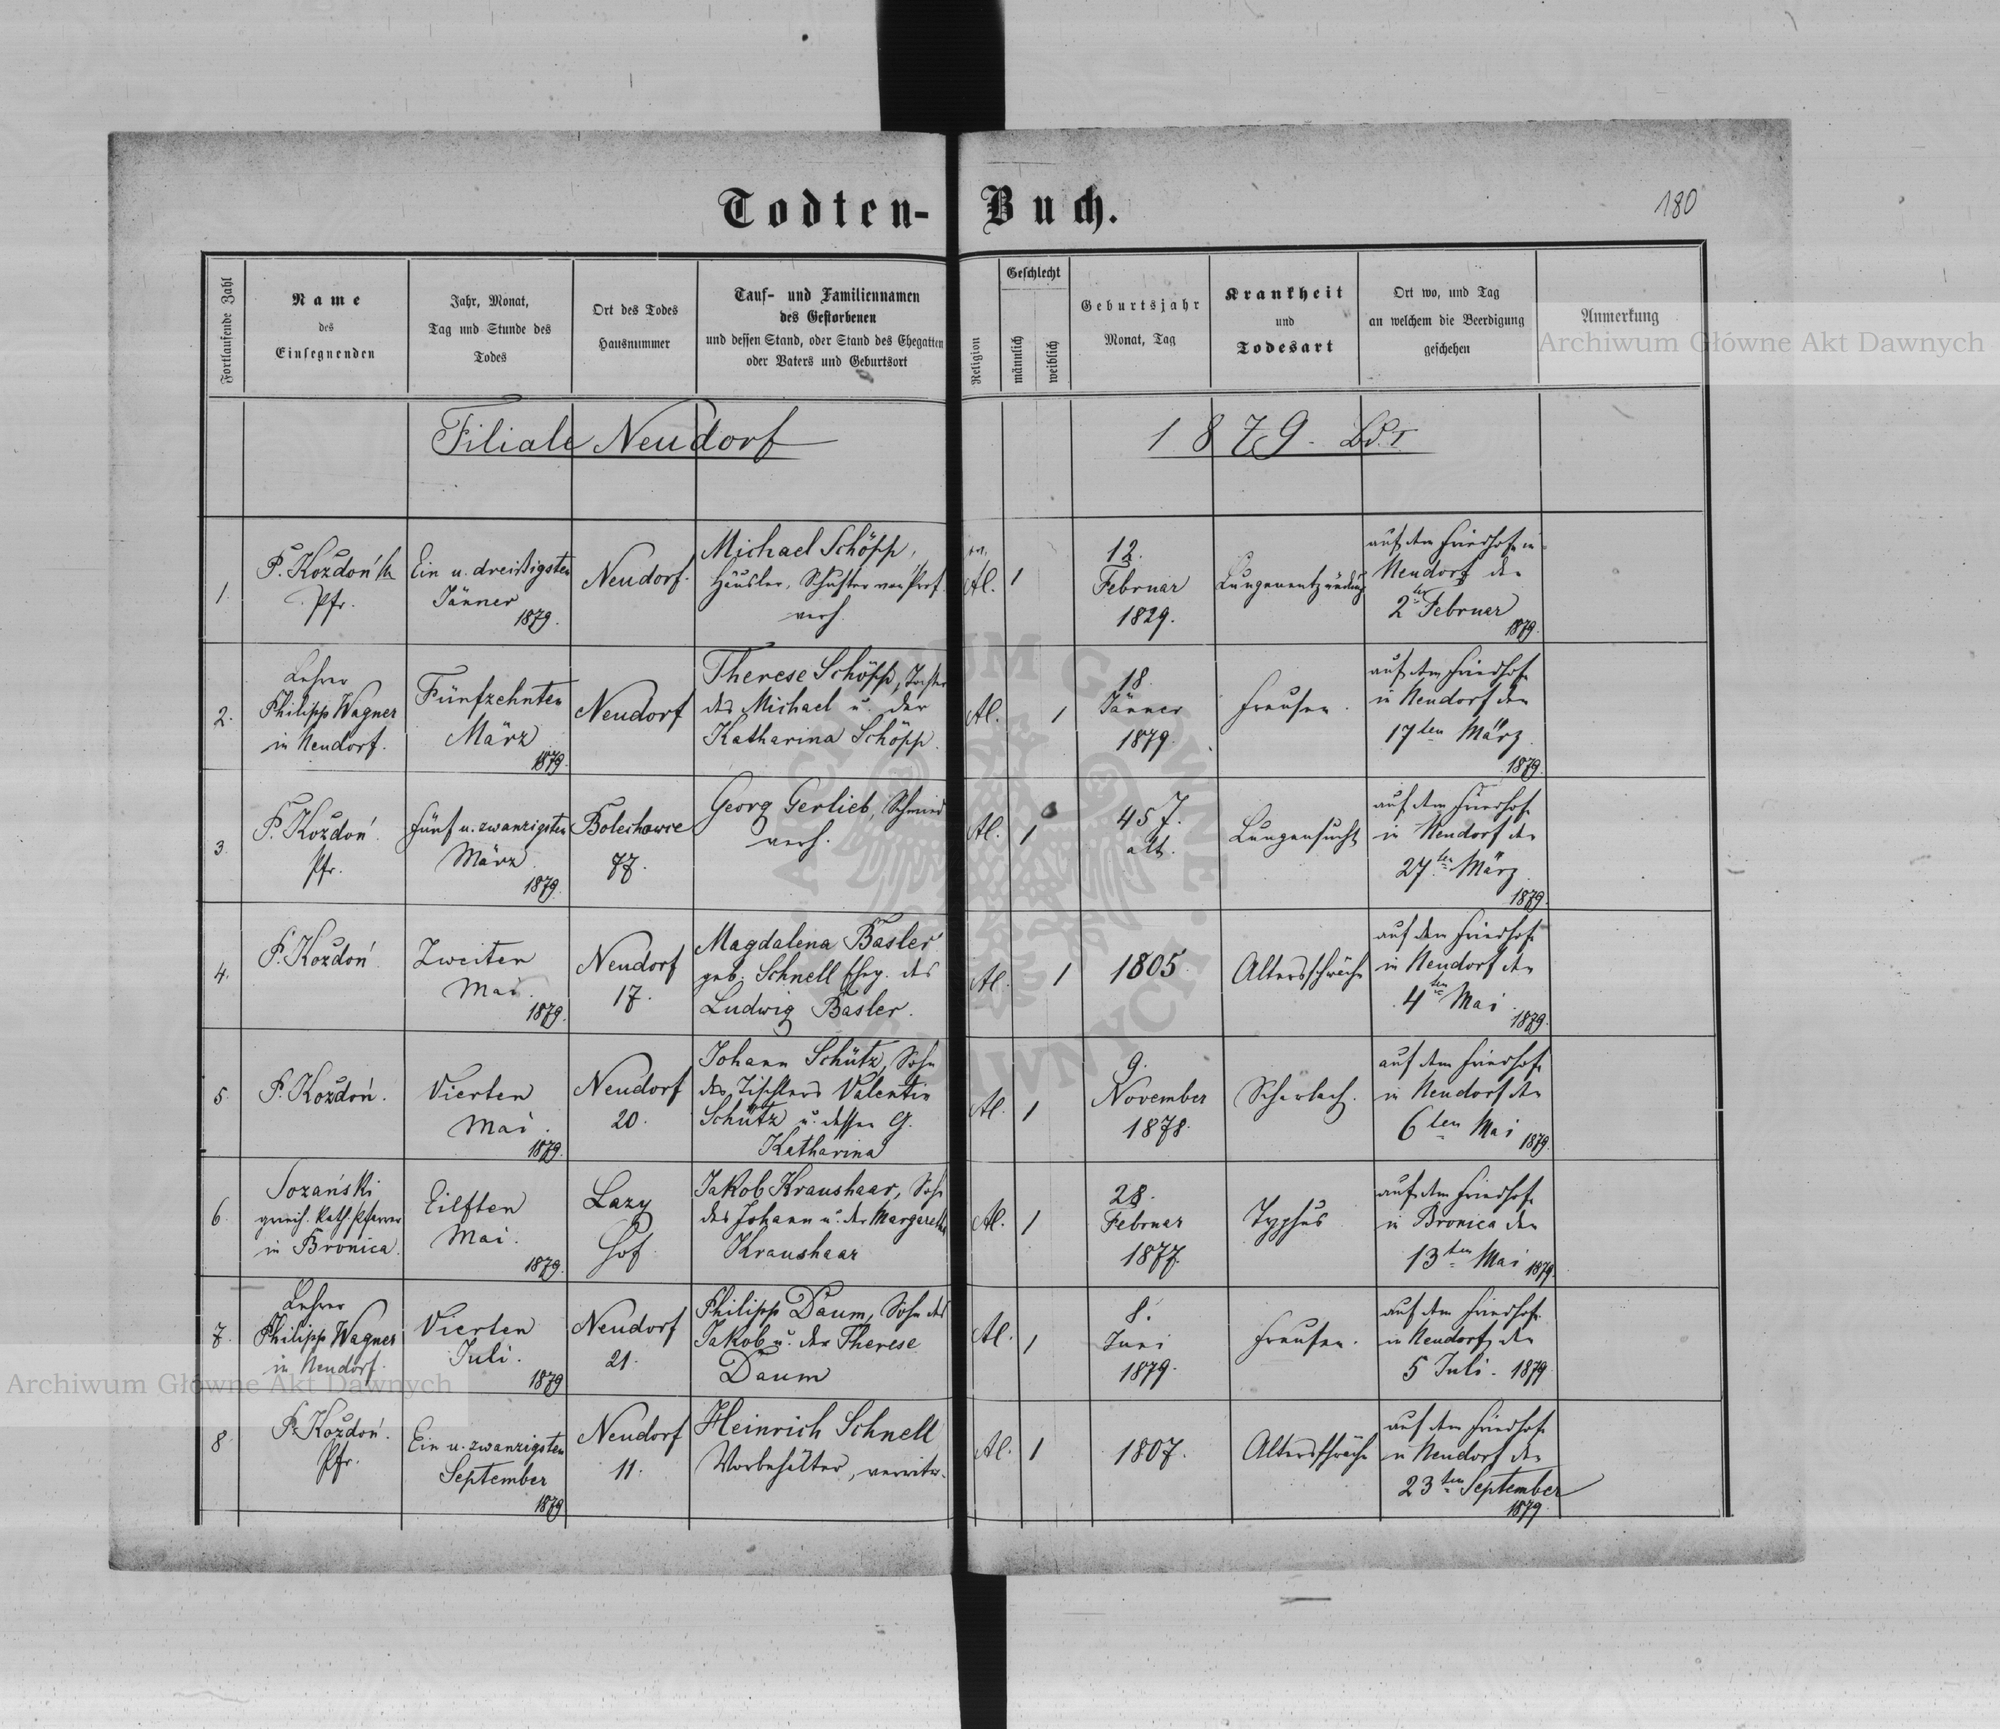 Todten-Buch.
180
Fortlaufende Zahl
Name
des
Einsegnenden
Jahr, Monat,
Tag und Stunde des
Todes
Ort des Todes
Hausnummer
Tauf- und Familiennamen
des Gestorbenen
und dessen Stand, oder Stand des Ehegatten
oder Vaters und Geburtsort
Religion
Geschlecht
männlich
weiblich
Geburtsjahr
Monat, Tag
Krankheit
und
Todesart
Ort wo, und Tag
an welchem die Beerdigung
geschehen
Anmerkung
Filiale Neudorf
1879.
1.
P. Kozdoń
Pfr.
Ein u. dreißigsten
Jänner
1879.
Neudorf.
Michael Schöpp,
Häusler, Schuster von Prof.
verh.
1
12.
Februar
1829.
Lungenentzündung
auf dem Friedhofe in
Neudorf den
2ten Februar
1879.
2.
Lehrer
Philipp Wagner
in Neudorf.
Fünfzehnten
März
1879.
Neudorf
Therese Schöpp, Tochter
des Michael u. der
Katharina Schöpp.
1
18.
Jänner
1879.
Fraisen.
auf dem Friedhofe
in Neudorf den
17ten März
1879.
3.
P. Kozdoń
Pfr.
Fünf u. zwanzigsten
März
1879.
Bolechowce
77.
Georg Gerlieb, Schmied
verh.
1
45 J.
alt.
Lungensucht
auf dem Friedhofe
in Neudorf den
27ten März
1879.
4.
P. Kozdoń
Zweiten
Mai.
1879.
Neudorf
17.
Magdalena Basler
geb. Schnell Eheg. des
Ludwig Basler.
1
1805.
Altersschwäche
auf dem Friedhofe
in Neudorf den
4ten Mai
1879.
5
P. Kozdoń.
Vierten
Mai.
1879.
Neudorf
20.
Johann Schütz, Sohn
des Tischlers Valentin
Schütz u. dessen G.
Katharina
1
9.
November
1878.
Scharlach.
auf dem Friedhofe
in Neudorf den
6ten Mai 1879.
6
Sozański
griech. kath. Pfarrer
in Bronica.
Eilften
Mai.
1879.
Lazy
Hof
Jakob Kraushaar, Sohn
des Johann u. der Margaretha
Kraushaar
1
28.
Februar
1877.
Typhus
auf dem Friedhofe
in Bronica den
13ten Mai 1879.
7.
Lehrer
Philipp Wagner
in Neudorf.
Vierten
Juli.
1879
Neudorf
21.
Philipp Daum, Sohn des
Jakob u. der Therese
Daum
1
8.
Juni
1879.
Fraisen.
auf dem Friedhofe
in Neudorf den
5 Juli. 1879
8.
P. Kozdoń.
Pfr.
Ein u. zwanzigsten
September
1879
Neudorf
11.
Heinrich Schnell
Vorbehälter, verwitw.
1
1807.
Altersschwäche
auf dem Friedhofe
in Neudorf den
23ten September
1879.
Archiwum Główne Akt Dawnych
Archiwum Główne Akt Dawnych